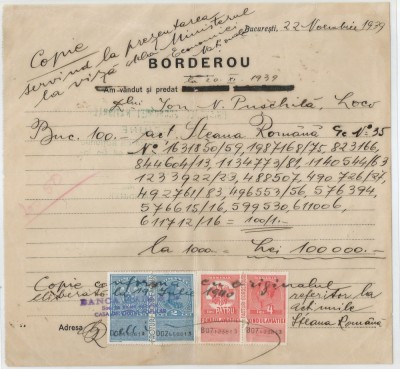 Copie
servind la prezentarea
la viză Ministerul
Economiei
Naționale
București, 22 Noembrie 1939
BORDEROU
20 XI 1939
Am vândut și predat
Dlui Ion N. Puschilă, Loco
Buc. 100.— act. Steana Română Cc Nº 35
Nº 1631850/59, 1987168/75, 823166,
844604/13, 1134773/81, 1140544/63
1233922/23, 488507, 490726/27,
492761/83, 496553/56, 576394,
576615/16, 599530, 611006,
611712/16 = 100/1.-
la 1000.— Lei 100000.—
Copie conformă cu originalul
eliberată Iulie 1940 referitor la
acțiunile
Steana Română
BANCA
PATRU
Adresa